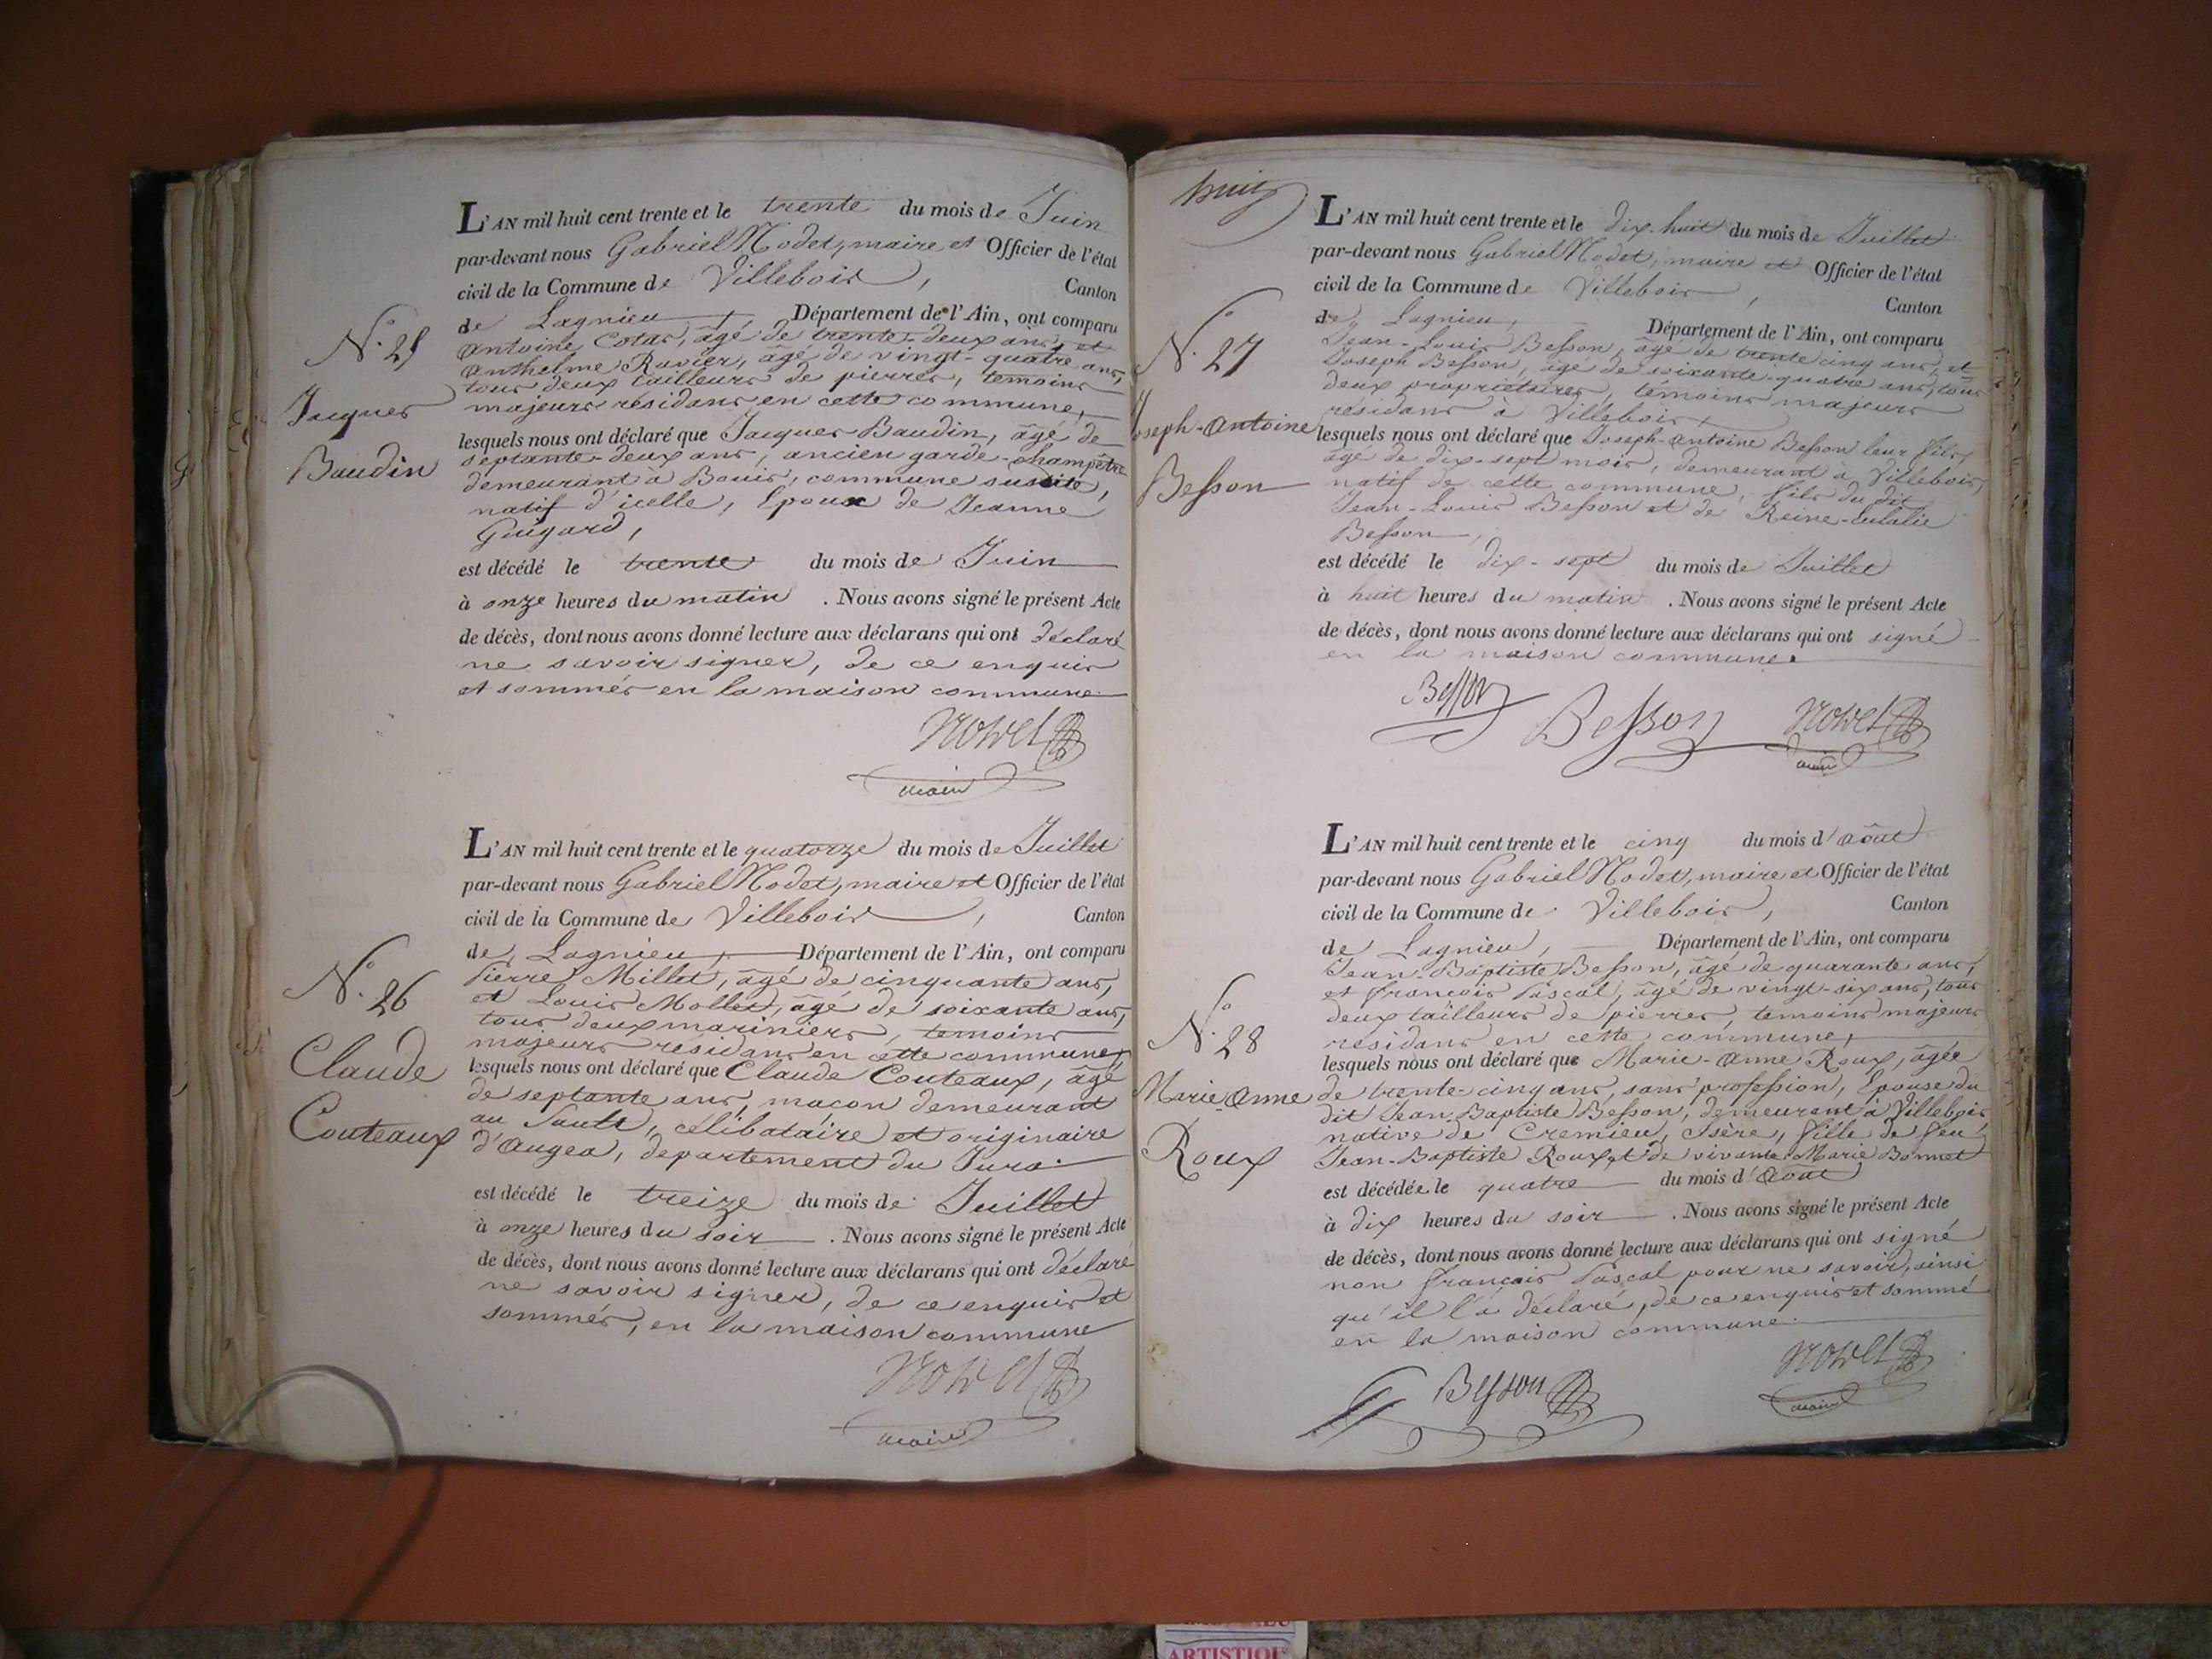 L'AN mil huit cent trente et le trente du mois de Juin
par-devant nous Gabriel Nodet, maire et Officier de l'état
civil de la Commune de Villebois, Canton
de Lagnieu, Département de l'Ain, ont comparu
N.o 25
Antoine Cotar, âgé de trente-deux ans, et
Anthelme Ravier, âgé de vingt-quatre ans,
tous deux tailleurs de pierres, temoins
majeurs résidans en cette commune,
Jacques
Baudin
lesquels nous ont déclaré que Jacques Baudin, âgé de
septante-deux ans, ancien garde-champêtre
demeurant à Bouis, commune susdite,
natif d'icelle, Epoux de Jeanne
Guigard,
est décédé le trente du mois de Juin
à onze heures du matin . Nous avons signé le présent Acte
de décès, dont nous avons donné lecture aux déclarans qui ont déclaré
ne savoir signer, de ce enquis
et sommés en la maison commune.
Nodet
maire
L'AN mil huit cent trente et le quatorze du mois de Juillet
par-devant nous Gabriel Nodet, maire et Officier de l'état
civil de la Commune de Villebois, Canton
de Lagnieu, Département de l'Ain, ont comparu
N.o 26
Pierre Millet, âgé de cinquante ans,
et Louis Mollet, âgé de soixante ans,
tous deux mariniers, temoins
majeurs résidans en cette commune,
Claude
Couteaux
lesquels nous ont déclaré que Claude Couteaux, âgé
de septante ans, maçon demeurant
au Sault, célibataire et originaire
d'Augea, departement du Jura.
est décédé le treize du mois de Juillet
à onze heures du soir . Nous avons signé le présent Acte
de décès, dont nous avons donné lecture aux déclarans qui ont déclaré
ne savoir signer, de ce enquis et
sommés, en la maison commune
Nodet
maire
huit
L'AN mil huit cent trente et le dix-huit du mois de Juillet
par-devant nous Gabriel Nodet, maire et Officier de l'état
civil de la Commune de Villebois, Canton
de Lagnieu, Département de l'Ain, ont comparu
N.o 27
Jean-Louis Besson, âgé de trente cinq ans, et
Joseph Besson, âgé de soixante-quatre ans, tous
deux propriétaires, témoins majeurs
résidans à Villebois,
Joseph-Antoine
Besson
lesquels nous ont déclaré que Joseph-Antoine Besson leur fils,
âgé de dix-sept mois, demeurant à Villebois,
natif de cette commune, fils du dit
Jean-Louis Besson et de Reine-Eulalie
Besson,
est décédé le dix-sept du mois de Juillet
à huit heures du matin . Nous avons signé le présent Acte
de décès, dont nous avons donné lecture aux déclarans qui ont signé
en la maison commune.
Besson Besson Nodet
maire
L'AN mil huit cent trente et le cinq du mois d'Août
par-devant nous Gabriel Nodet, maire et Officier de l'état
civil de la Commune de Villebois, Canton
de Lagnieu, Département de l'Ain, ont comparu
N.o 28
Jean-Baptiste Besson, âgé de quarante ans,
et françois Pascal, âgé de vingt-six ans, tous
deux tailleurs de pierres, temoins majeurs
résidans en cette commune,
Marie-Anne
Roux
lesquels nous ont déclaré que Marie-Anne Roux, âgée
de trente-cinq ans, sans profession, Epouse du
dit Jean-Baptiste Besson, demeurant à Villebois
native de Cremieu, Isère, fille de feu
Jean-Baptiste Roux, et de vivante Marie Bonnet
est décédée le quatre du mois d'Août
à dix heures du soir . Nous avons signé le présent Acte
de décès, dont nous avons donné lecture aux déclarans qui ont signé
non françois Pascal pour ne savoir, ainsi
qu'il l'a déclaré, de ce enquis et sommé
en la maison commune.
Besson Nodet
maire
ARTISTIQU